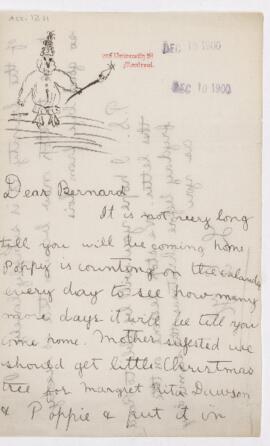 Acc. 1211
DEC 10 1900
University St
Montreal.
DEC 10 1900
Dear Bernard
It is not very long
till you will be coming home
Poppy is counting on the calander
every day to see how many
more days it will be till you
come home. Mother sugested we
should get little Cheristmas
tree for Margret Ruter Dawson
& Poppie & put it in